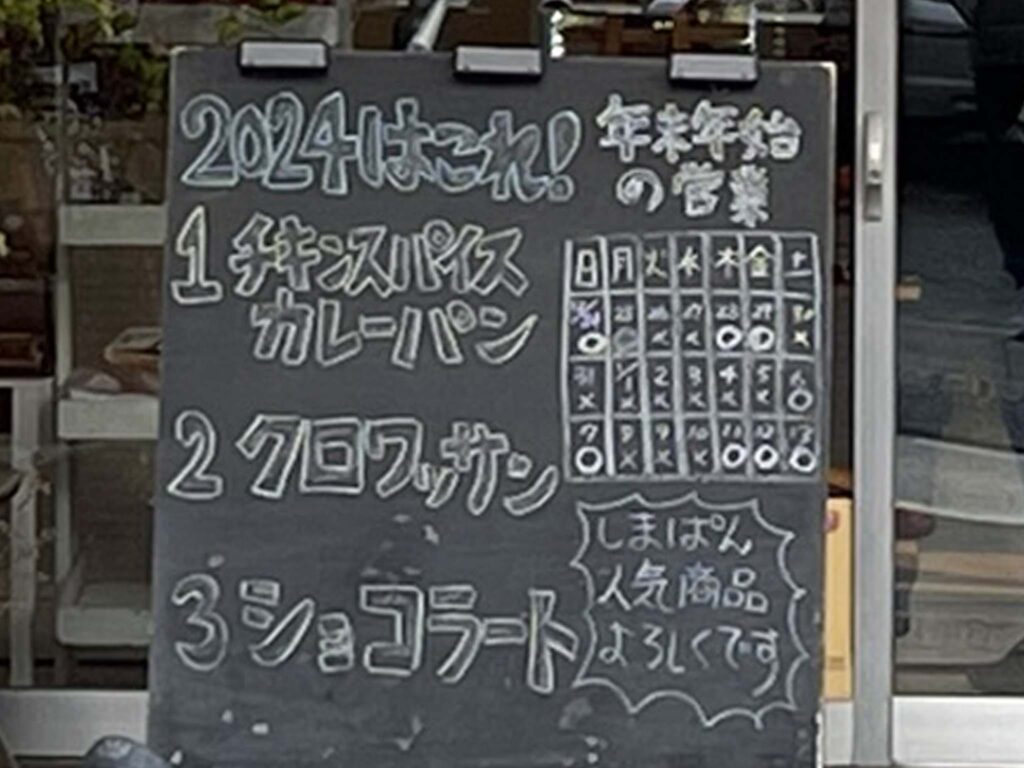 2024はこれ!
1 チキンスパイス
カレーパン
2 クロワッサン
3 ショコラート
年末年始
の営業
日 月 火 水 木 金 土
12/24 25 26 27 28 29 30
○ ○ × × ○ ○ ×
31 1/1 2 3 4 5 6
× × × × × × ○
7 8 9 10 11 12 13
○ × × × ○ ○ ○
しまぱん
人気商品
よろしくです